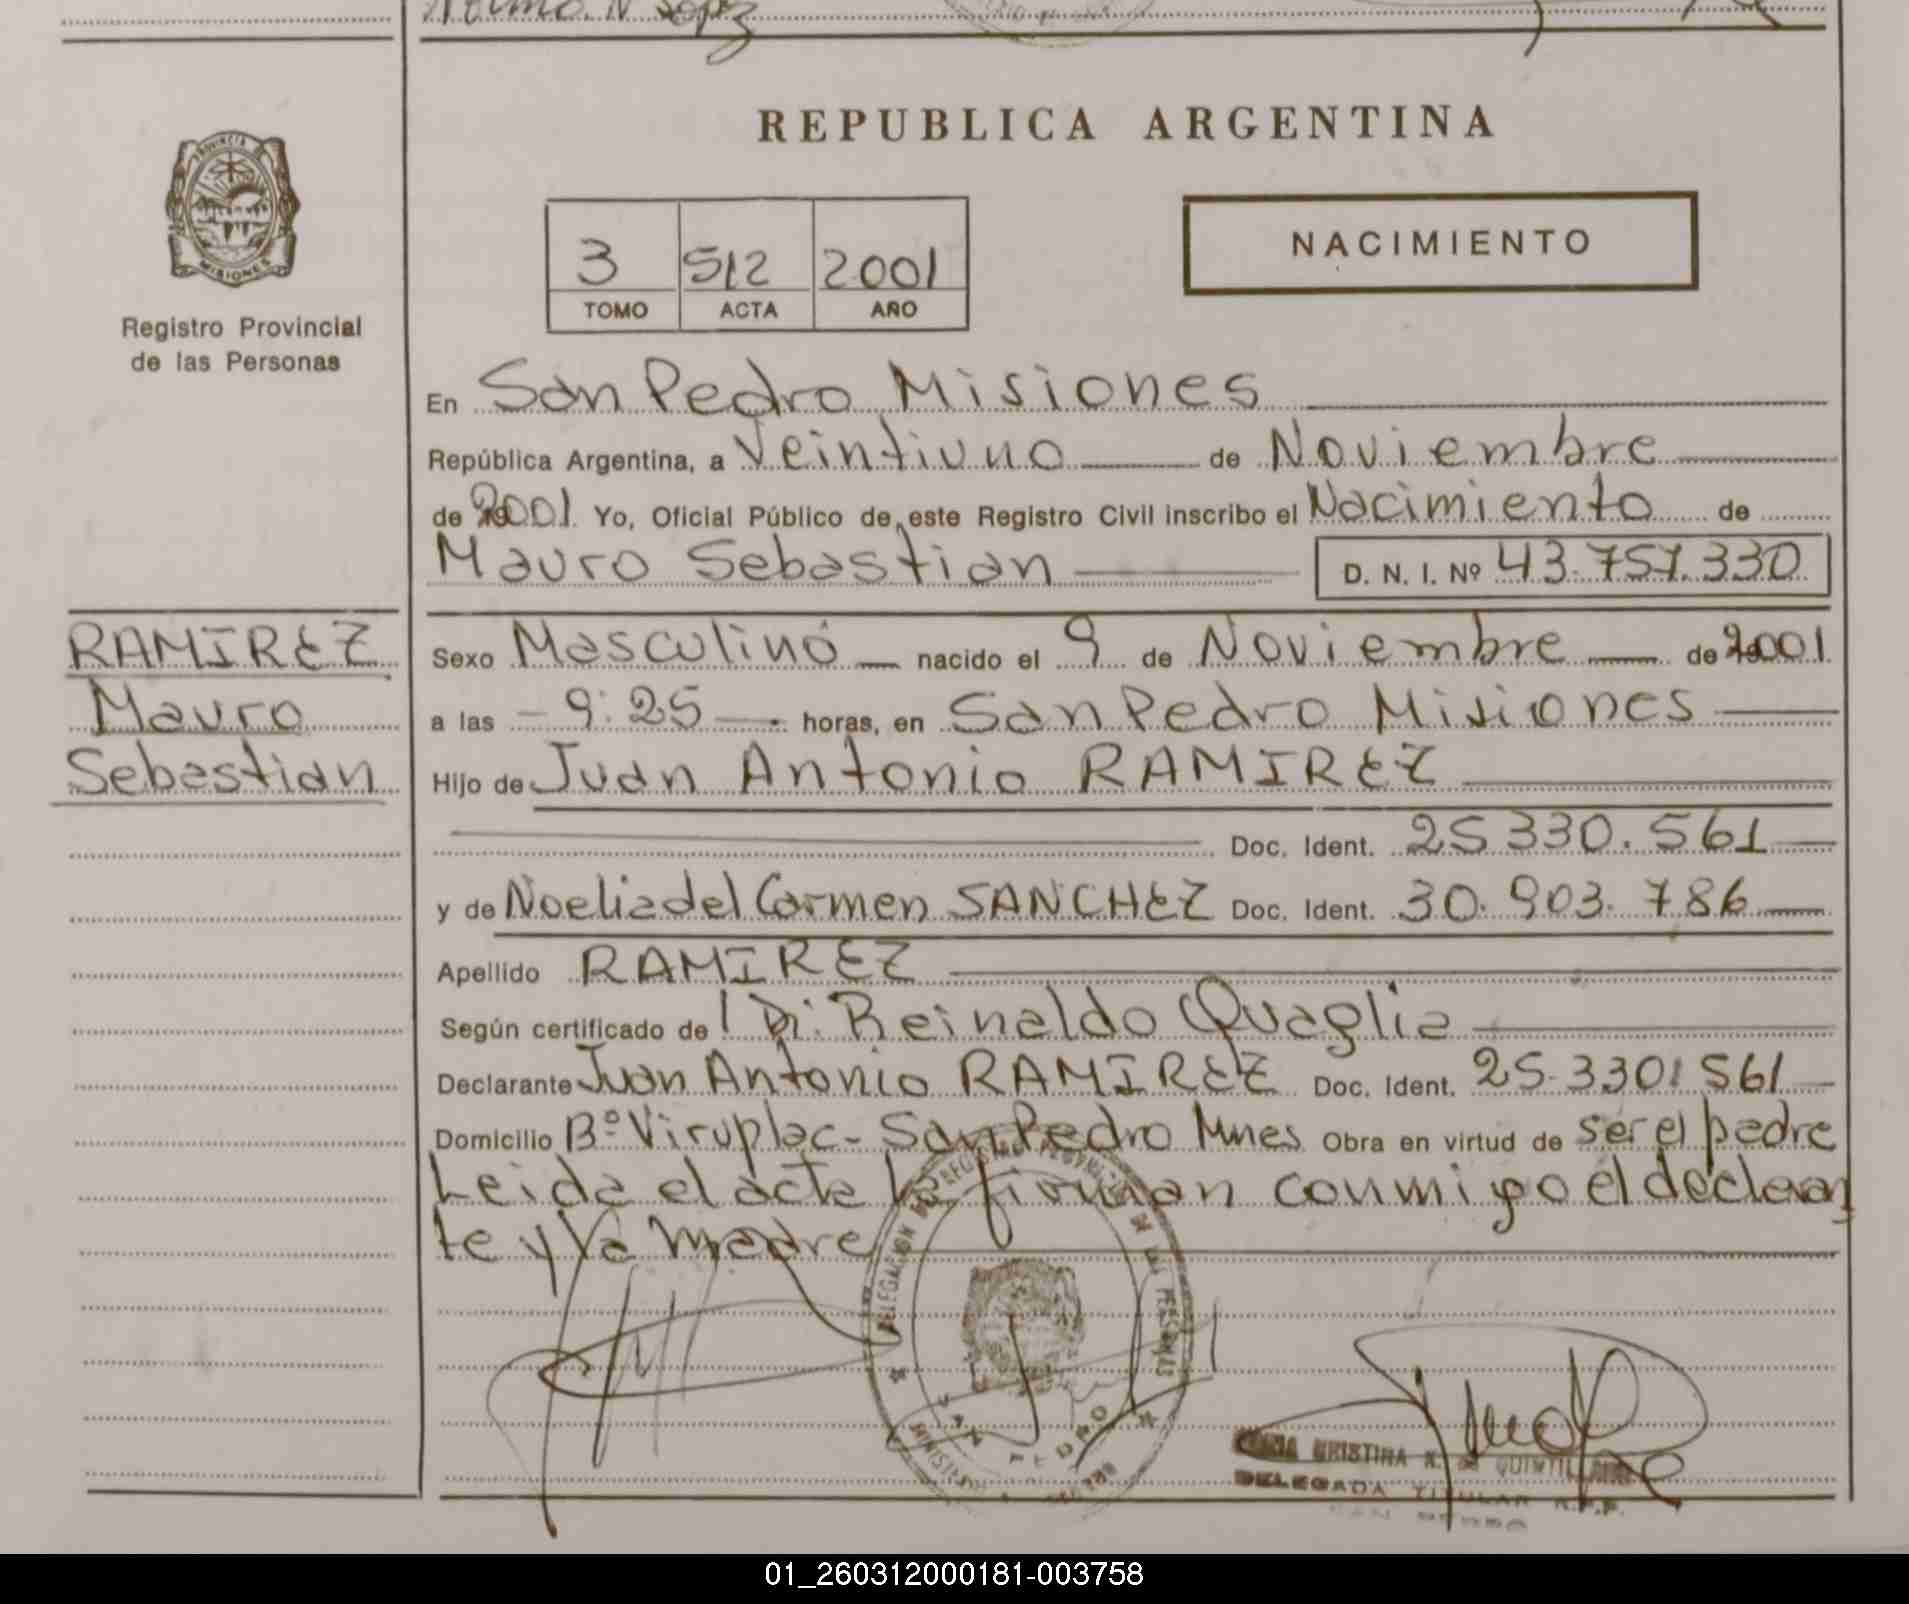 REPUBLICA ARGENTINA
PROVINCIA DE
MISIONES
Registro Provincial
de las Personas
3 512 2001
TOMO ACTA AÑO
NACIMIENTO
En San Pedro Misiones
República Argentina, a Veintiuno de Noviembre
de 2001. Yo, Oficial Público de este Registro Civil inscribo el Nacimiento de
Mauro Sebastian D. N. I. Nº 43.757.330
RAMIREZ
Mauro
Sebastian
Sexo Masculino nacido el 9 de Noviembre de 2001
a las 9:25 horas, en San Pedro Misiones
Hijo de Juan Antonio RAMIREZ
Doc. Ident. 25 330.561
y de Noelia del Carmen SANCHEZ Doc. Ident. 30.903.786
Apellido RAMIREZ
Según certificado de Reinaldo Quaglia
Declarante Juan Antonio RAMIREZ Doc. Ident. 25.330.561
Domicilio Bº Viruplac - San Pedro Mnes Obra en virtud de ser el padre
Leida el acta la firman conmigo el declaran
te y la madre
SAN PEDRO
DELEGADA TITULAR R.P.P.
SAN PEDRO
01_260312000181-003758